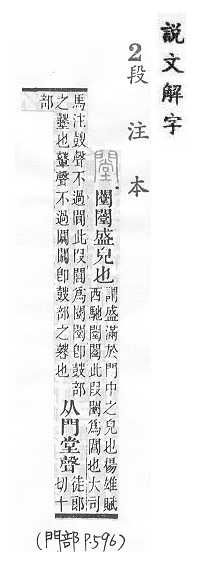 說文解字
2段注本
闛
闛闛盛皃也
謂盛滿於門中之皃也楊雄賦
西馳閶闔此叚闛爲閶也大司
馬注鼓聲不過閶此叚閶爲闛闛卽鼓部
之鼞也鼞聲不過閶閶卽鼓部之鼞也
从門堂聲
徒郎
切十
部
(門部 P.596)